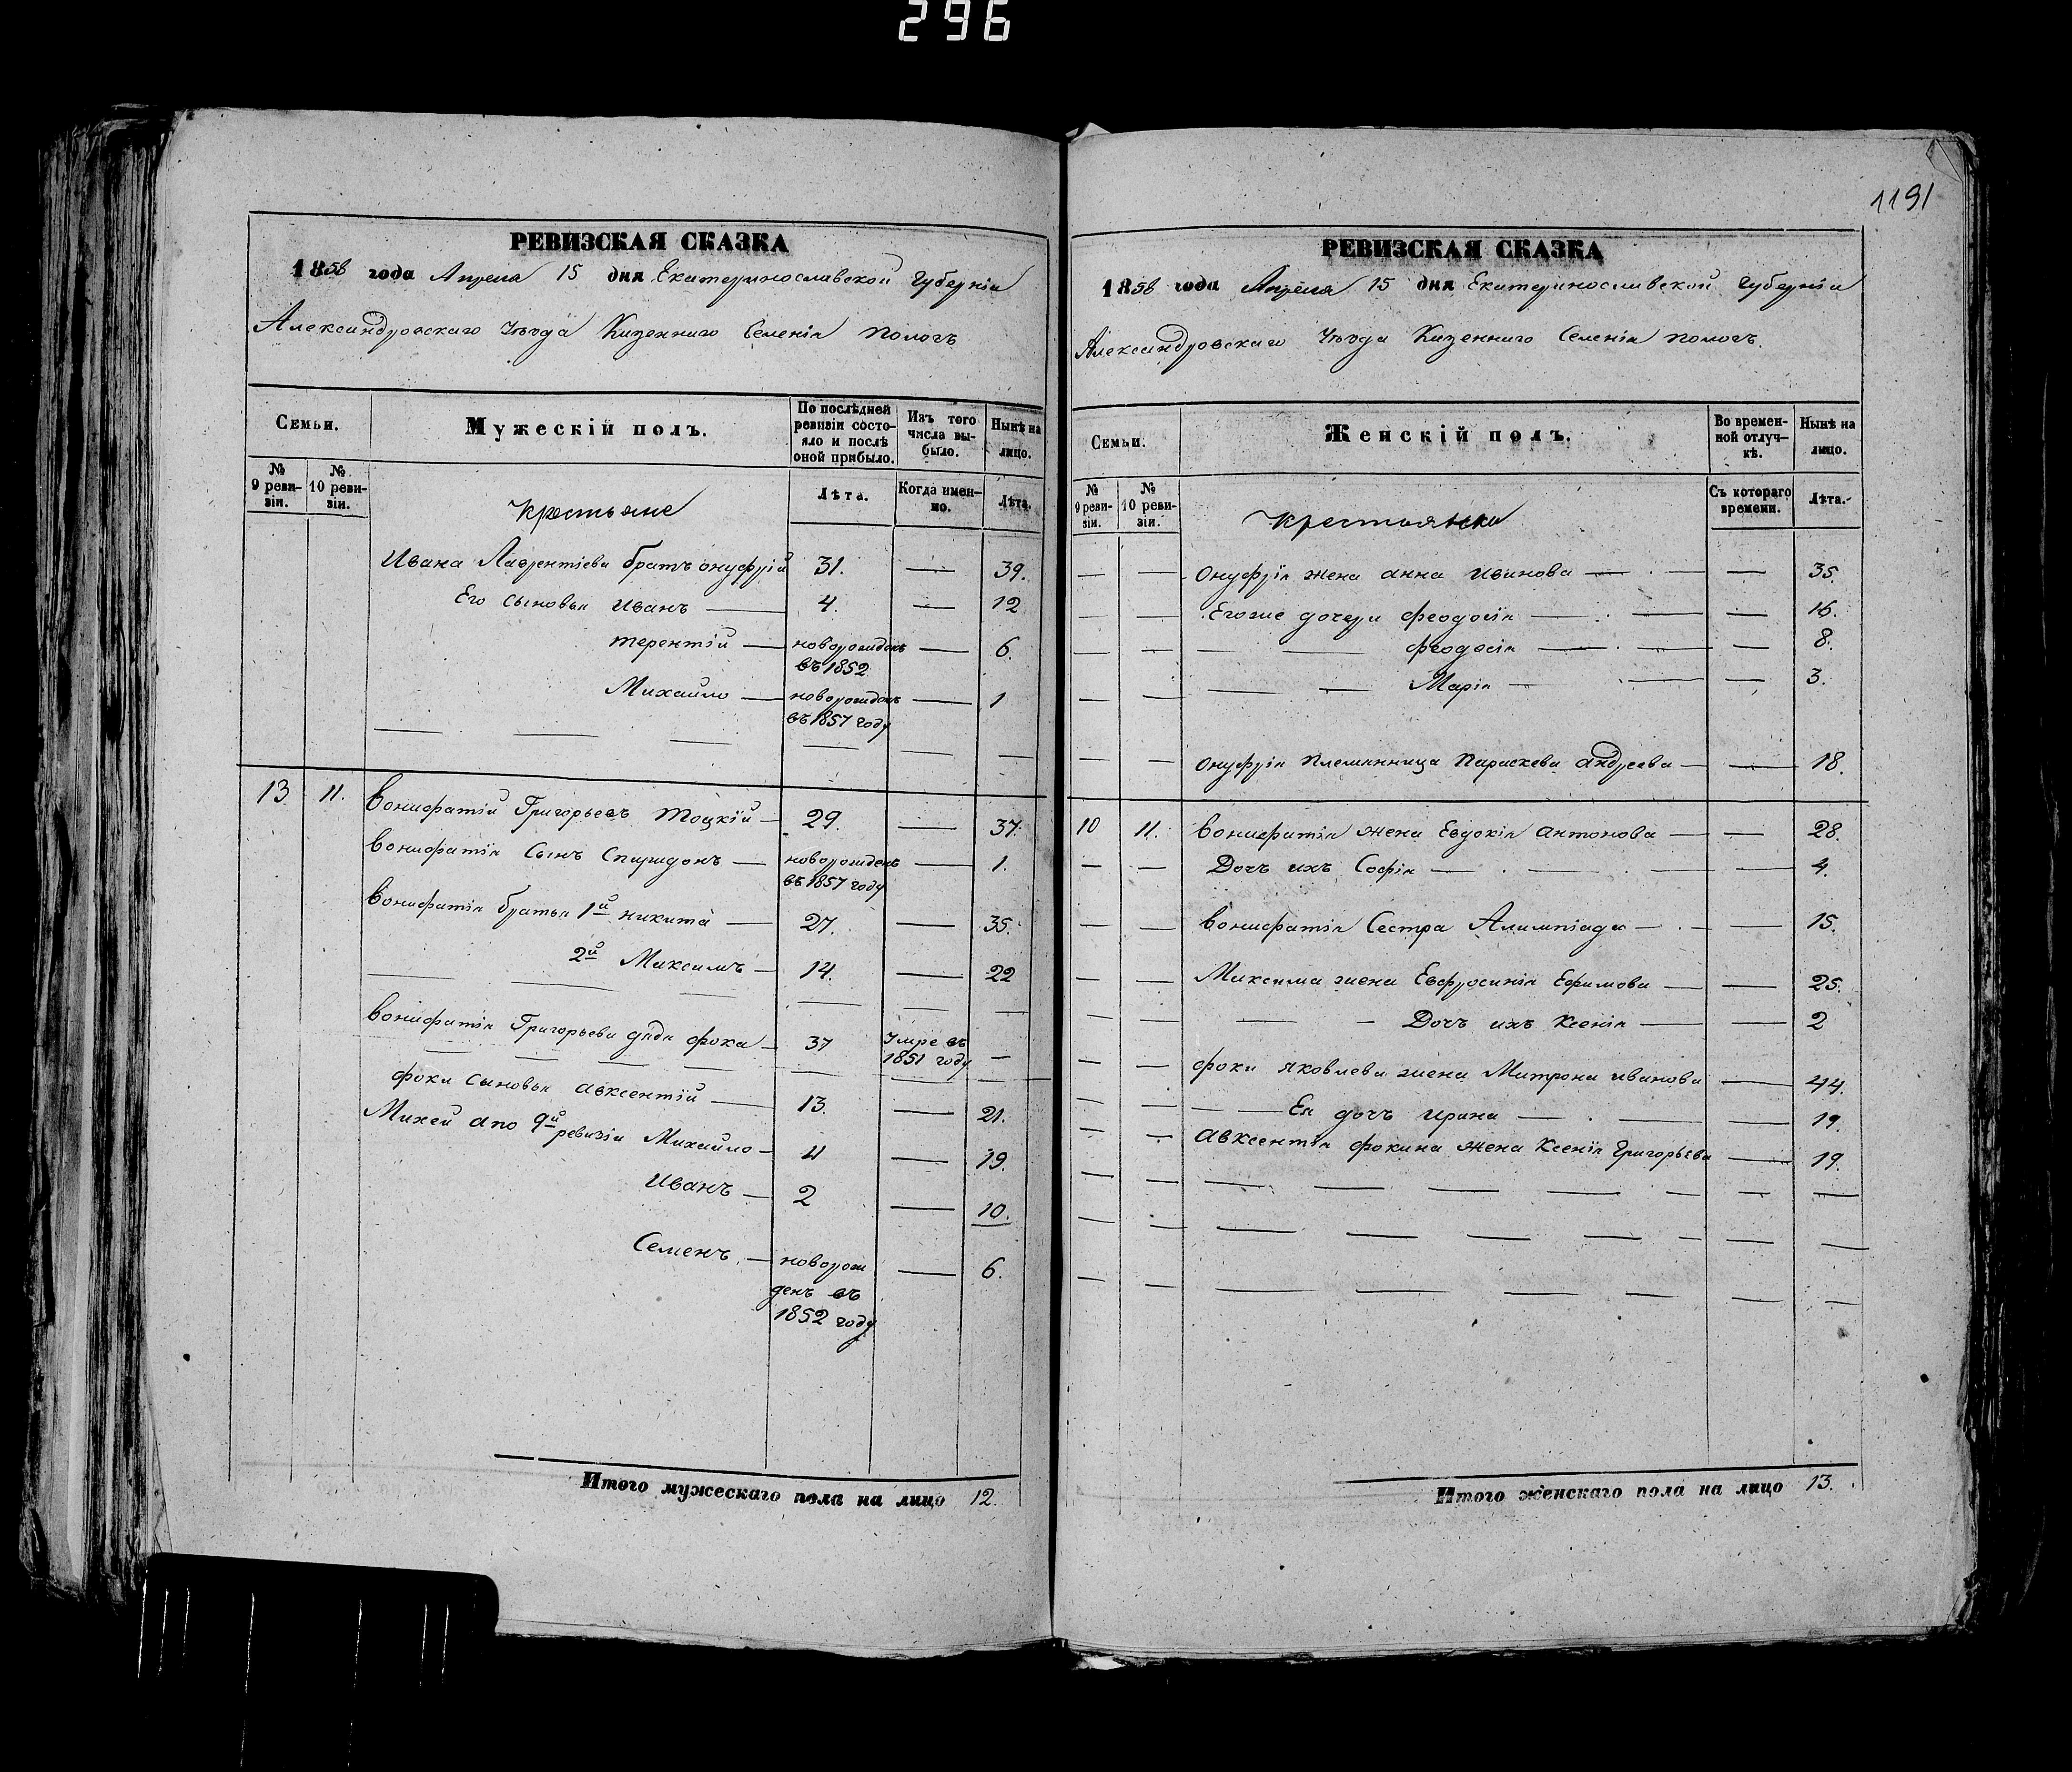 296
1191
РЕВИЗСКАЯ СКАЗКА
1858 года Апреля 15 дня Екатеринославской Губерніи
Александровскаго Уѣзда Казеннаго Селенія Пологъ
Семьи.
Мужескій полъ.
По послѣдней ревизіи состояло и послѣ оной прибыло.
Изъ того числа выбыло.
Нынѣ на лицо.
№ 9 ревизіи.
№ 10 ревизіи.
Крестьяне
Лѣта.
Когда именно.
Лѣта.
Ивана Лаврентіева братъ Онуфрій 31. — 39.
Его сыновья Иванъ — 4. — 12
Терентій — новорожденъ въ 1852 — 6.
Михайло — новорожденъ въ 1857 году — 1
13 11. Вонифатій Григорьевъ Тоцкій — 29. — 37.
Вонифатія Сынъ Спиридонъ — новорожденъ въ 1857 году — 1.
Вонифатія братья 1й Никита — 27. — 35.
2й Максимъ — 14. — 22
Вонифатія Григорьева дядя Фока — 37 Умре въ 1851 году —
Фоки сыновья Авксентій — 13. — 21.
Михей а по 9й ревизіи Михайло — 11 — 19.
Иванъ — 2 — 10.
Семенъ — новорожденъ въ 1852 году — 6.
Итого мужескаго пола на лицо 12.
РЕВИЗСКАЯ СКАЗКА
1858 года Апреля 15 дня Екатеринославской Губерніи
Александровскаго Уѣзда Казеннаго Селенія Пологъ.
Семьи.
Женскій полъ.
Во временной отлучкѣ.
Нынѣ на лицо.
№ 9 ревизіи.
№ 10 ревизіи.
Крестьянки
Съ котораго времени.
Лѣта.
— — Онуфрія жена Анна Иванова — — 35.
— — Егоже дочери Феодосія — — 16.
— — Феодосія — — 8.
— — Марія — — 3.
— — Онуфрія племянница Параскева Андреева — — 18.
10 11. Вонифатія жена Евдокія Антонова — — 28.
— — Дочь ихъ Софія — — 4.
— — Вонифатія Сестра Алимпіада — — 15.
— — Максима жена Евфросинія Ефимова — — 25.
— — Дочь ихъ Ксенія — — 2
— — Фоки Яковлева жена Матрона Иванова — 44.
— — Ея дочь Ирина — — 19.
— — Авксентія Фокина жена Ксенія Григорьева — 19.
Итого женскаго пола на лицо 13.